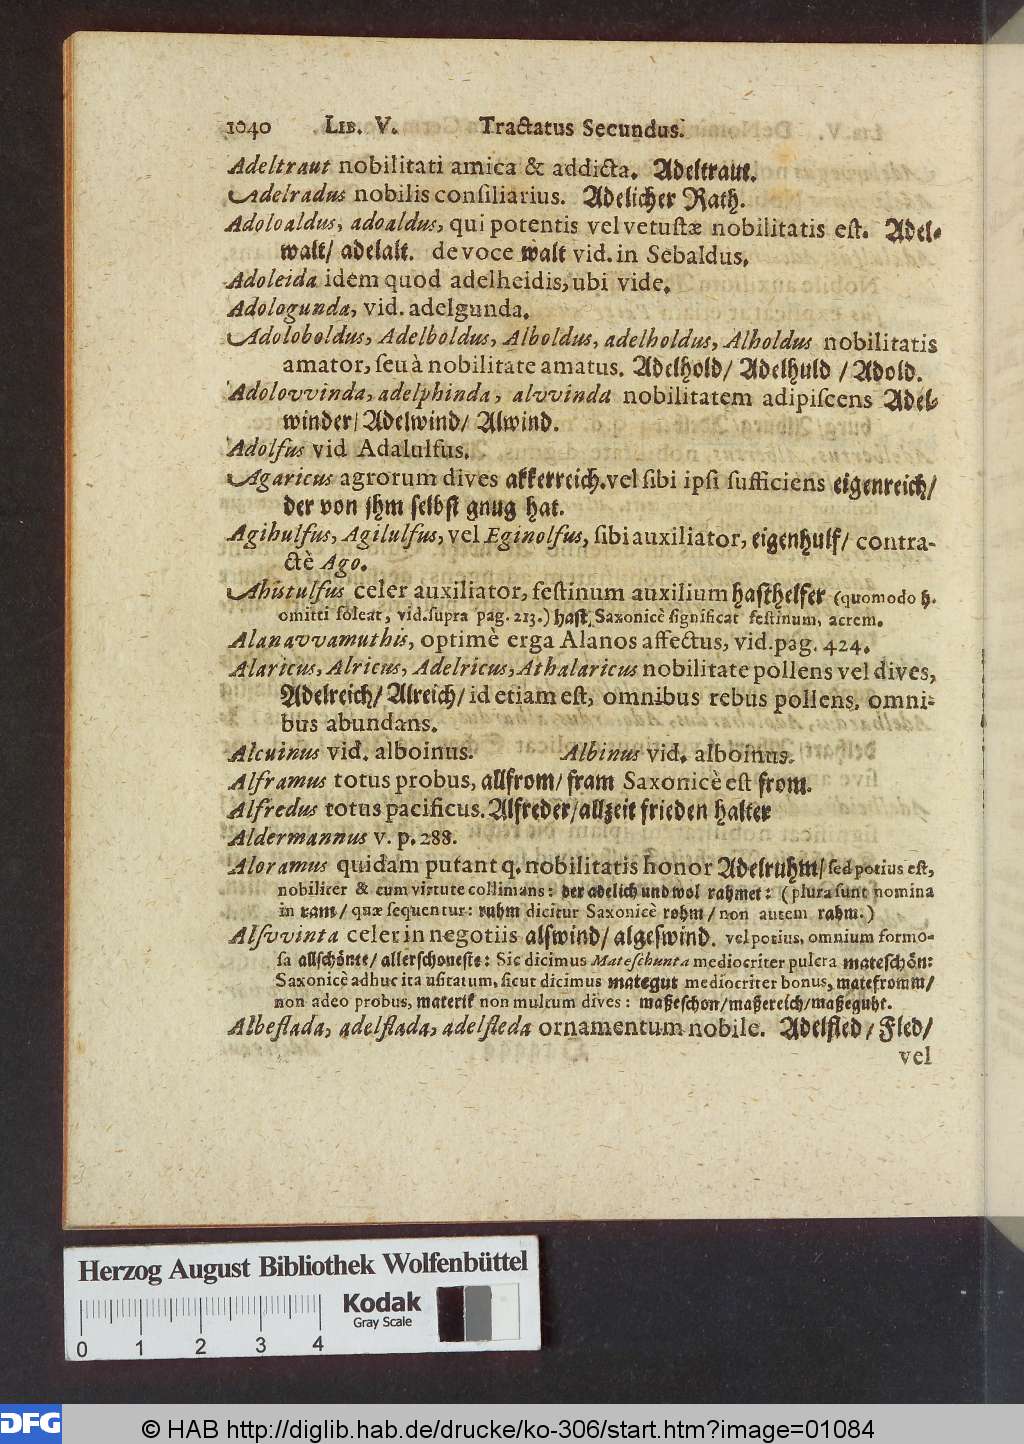 1040 LIB. V. Tractatus Secundus.
Adeltraut nobilitati amica & addicta. Adeltraut.
Adelradus nobilis consiliarius. Adelicher Rath.
Adoloaldus, adoaldus, qui potentis vel vetustæ nobilitatis est. Adel-
walt/ adelalt. de voce walt vid. in Sebaldus.
Adoleida idem quod adelheidis, ubi vide.
Adologunda, vid. adelgunda.
Adoloboldus, Adelboldus, Alboldus, adelholdus, Alholdus nobilitatis
amator, seu à nobilitate amatus. Adelhold/ Adelhuld / Adold.
Adolovvinda, adelphinda, alvvinda nobilitatem adipiscens Adel-
winder/ Adelwind/ Alwind.
Adolfus vid Adalulfus.
Agaricus agrorum dives akkerreich. vel sibi ipsi sufficiens eigenreich/
der von jhm selbst gnug hat.
Agihulfus, Agilulfus, vel Eginolfus, sibi auxiliator, eigenhulf/ contra-
ctè Ago.
Ahistulfus celer auxiliator, festinum auxilium hasthelfer (quomodo h.
omitti soleat, vid. supra pag. 213.) hast Saxonicè significat festinum, acrem.
Alanavvamuthis, optimè erga Alanos affectus, vid. pag. 424.
Alaricus, Alricus, Adelricus, Athalaricus nobilitate pollens vel dives,
Adelreich/ Alreich/ id etiam est, omnibus rebus pollens, omni-
bus abundans.
Alcuinus vid. alboinus. Albinus vid. alboinus.
Alframus totus probus, allfrom/ fram Saxonicè est from.
Alfredus totus pacificus. Alfreder/ allzeit frieden halter
Aldermannus v. p. 288.
Aloramus quidam putant q. nobilitatis honor Adelruhm/ sed potius est,
nobiliter & cum virtute collimans: der adelich und wol rahmet: (plura sunt nomina
in ram/ quæ sequentur: ruhm dicitur Saxonicè rohm / non autem rahm.)
Alsvvinta celer in negotiis alswind/ algeswind. vel potius, omnium formo-
sa allschönte/ allerschoneste: Sic dicimus Mateschunta mediocriter pulcra mateschön:
Saxonicè adhuc ita usitatum, sicut dicimus mategut mediocriter bonus, matefromm/
non adeo probus, materik non multum dives: maßeschon/ maßereich/ maßeguht.
Albeflada, adelflada, adelfleda ornamentum nobile. Adelfled / Fled/
vel
Herzog August Bibliothek Wolfenbüttel
Kodak
Gray Scale
0 1 2 3 4
DFG © HAB http://diglib.hab.de/drucke/ko-306/start.htm?image=01084